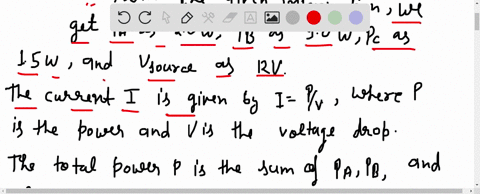 get
we
PB as
W, PC as
15W, and Vsource as 12V.
The current I is given by I= P/V, where P
is the power and V is the voltage drop.
The total power P is the sum of PA, PB, and